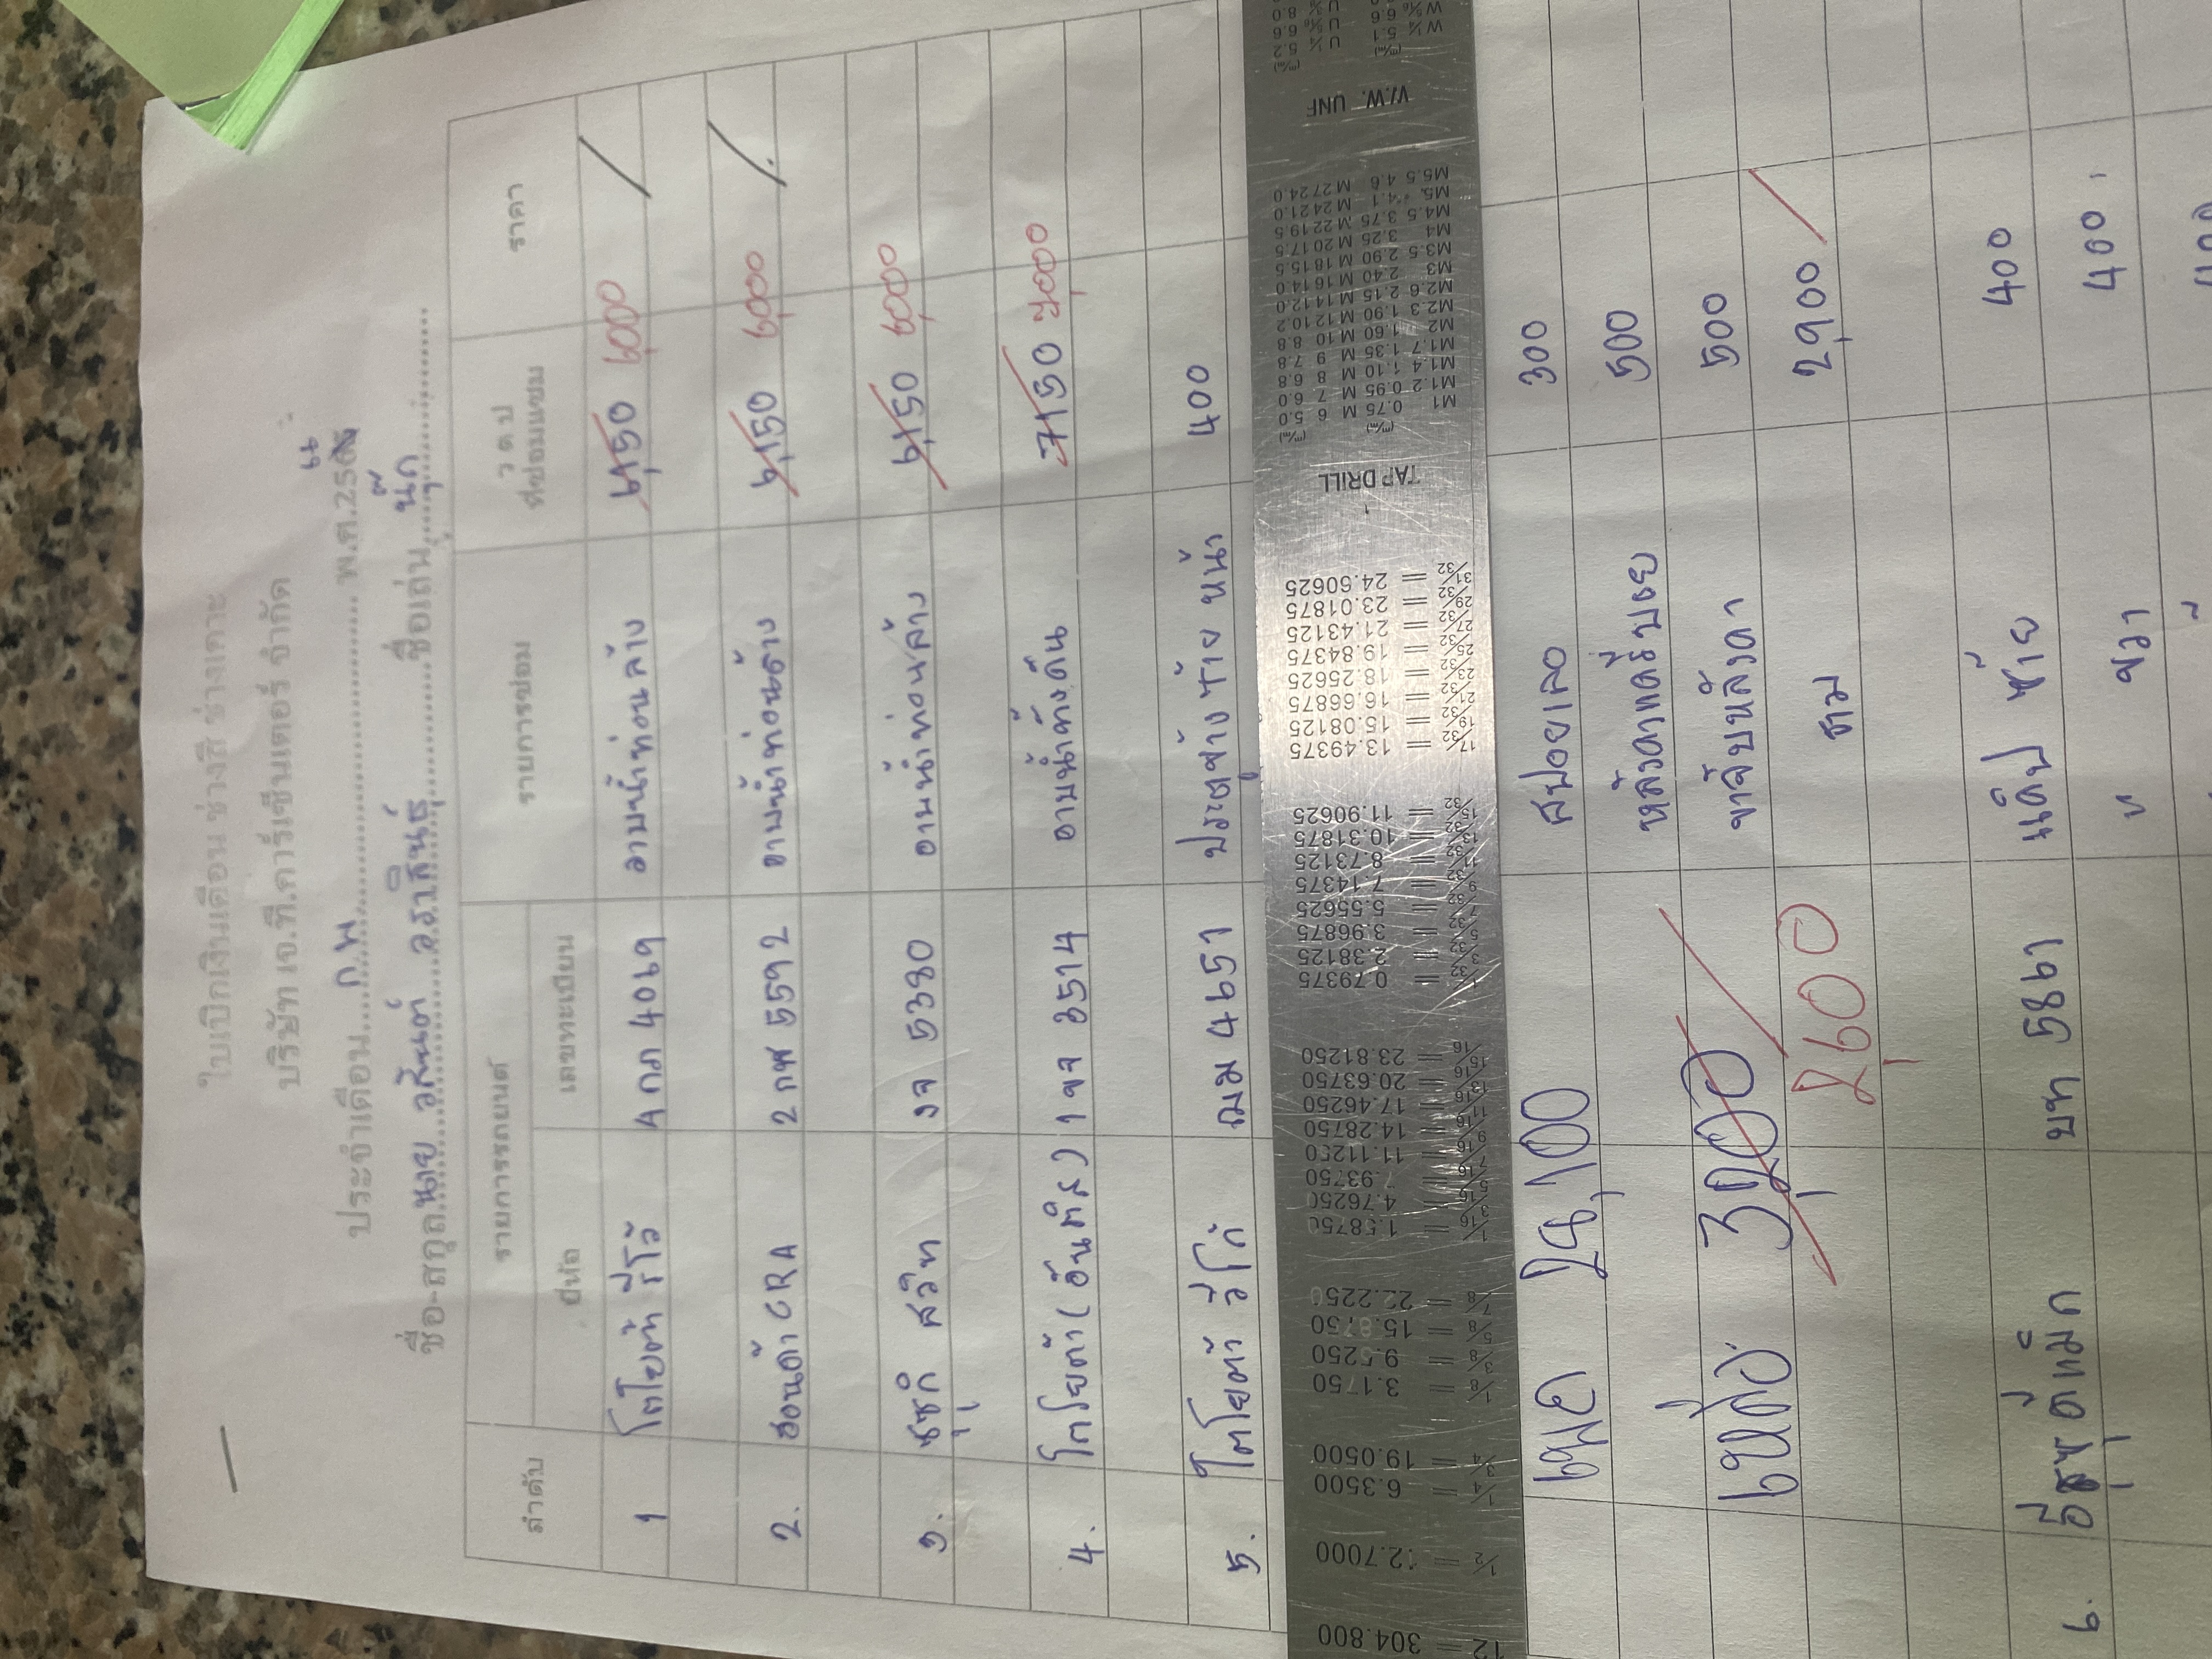 ใบเบิกเงินเดือน ช่างสี ช่างเคาะ
บริษัท เจ.ที.คาร์เซ็นเตอร์ จำกัด
ประจำเดือน ก.พ พ.ศ.25
ชื่อ-สกุล นาย วสันต์ ชื่อเล่น นุ๊ก
ลำดับ รายการรถยนต์ รายการซ่อม ว ด ป ที่ซ่อมแซม ราคา
ยี่ห้อ เลขทะเบียน
1 โตโยต้า รีโว้ 4069 อาบน้ำท่อนล่าง 6,150 6,000
2. ฮอนด้า CRA 2 กพ 5592 อาบน้ำท่อนล่าง 6,150 6,000
3. ซูซุกิ สวิท งจ 5380 อาบน้ำท่อนล่าง 6,150 6,000
4. โตโยต้า (อันติส) 1 ขจ 3514 อาบน้ำทั้งคัน 7,150 7,000
5. โตโยต้า วีโก้ ฌม 4651 ประตูข้างซ้าย หน้า 400
W.W. UNF
TAP DRILL
M1 0.75 M 6 5.0
M1.2 0.95 M 7 6.0
M1.4 1.10 M 8 6.8
M1.7 1.35 M 9 7.8
M2 1.60 M10 8.8
M2.3 1.90 M12 10.2
M2.6 2.15 M14 12.0
M3 2.40 M16 14.0
M3.5 2.90 M18 15.5
M4 3.25 M20 17.5
M4.5 3.75 M22 19.5
M5 4.1 M24 21.0
M5.5 4.6 M27 24.0
17/32 = 13.49375
19/32 = 15.08125
21/32 = 16.66875
23/32 = 18.25625
25/32 = 19.84375
27/32 = 21.43125
29/32 = 23.01875
31/32 = 24.60625
1/32 = 0.79375
3/32 = 2.38125
5/32 = 3.96875
7/32 = 5.55625
9/32 = 7.14375
11/32 = 8.73125
13/32 = 10.31875
15/32 = 11.90625
1/16 = 1.5875
3/16 = 4.76250
5/16 = 7.93750
7/16 = 11.11250
9/16 = 14.28750
11/16 = 17.46250
13/16 = 20.63750
15/16 = 23.81250
1/8 = 3.1750
3/8 = 9.5250
5/8 = 15.8750
7/8 = 22.2250
1/4 = 6.3500
3/4 = 19.0500
1/2 = 12.7000
12 = 304.800
สปอยเลอ 300
500
500
รวม 2,900
3,200
2,600
6. อีซูซุ ดีแม็ก บท 5861 แค็ป ซ้าย 400
" ขวา 400